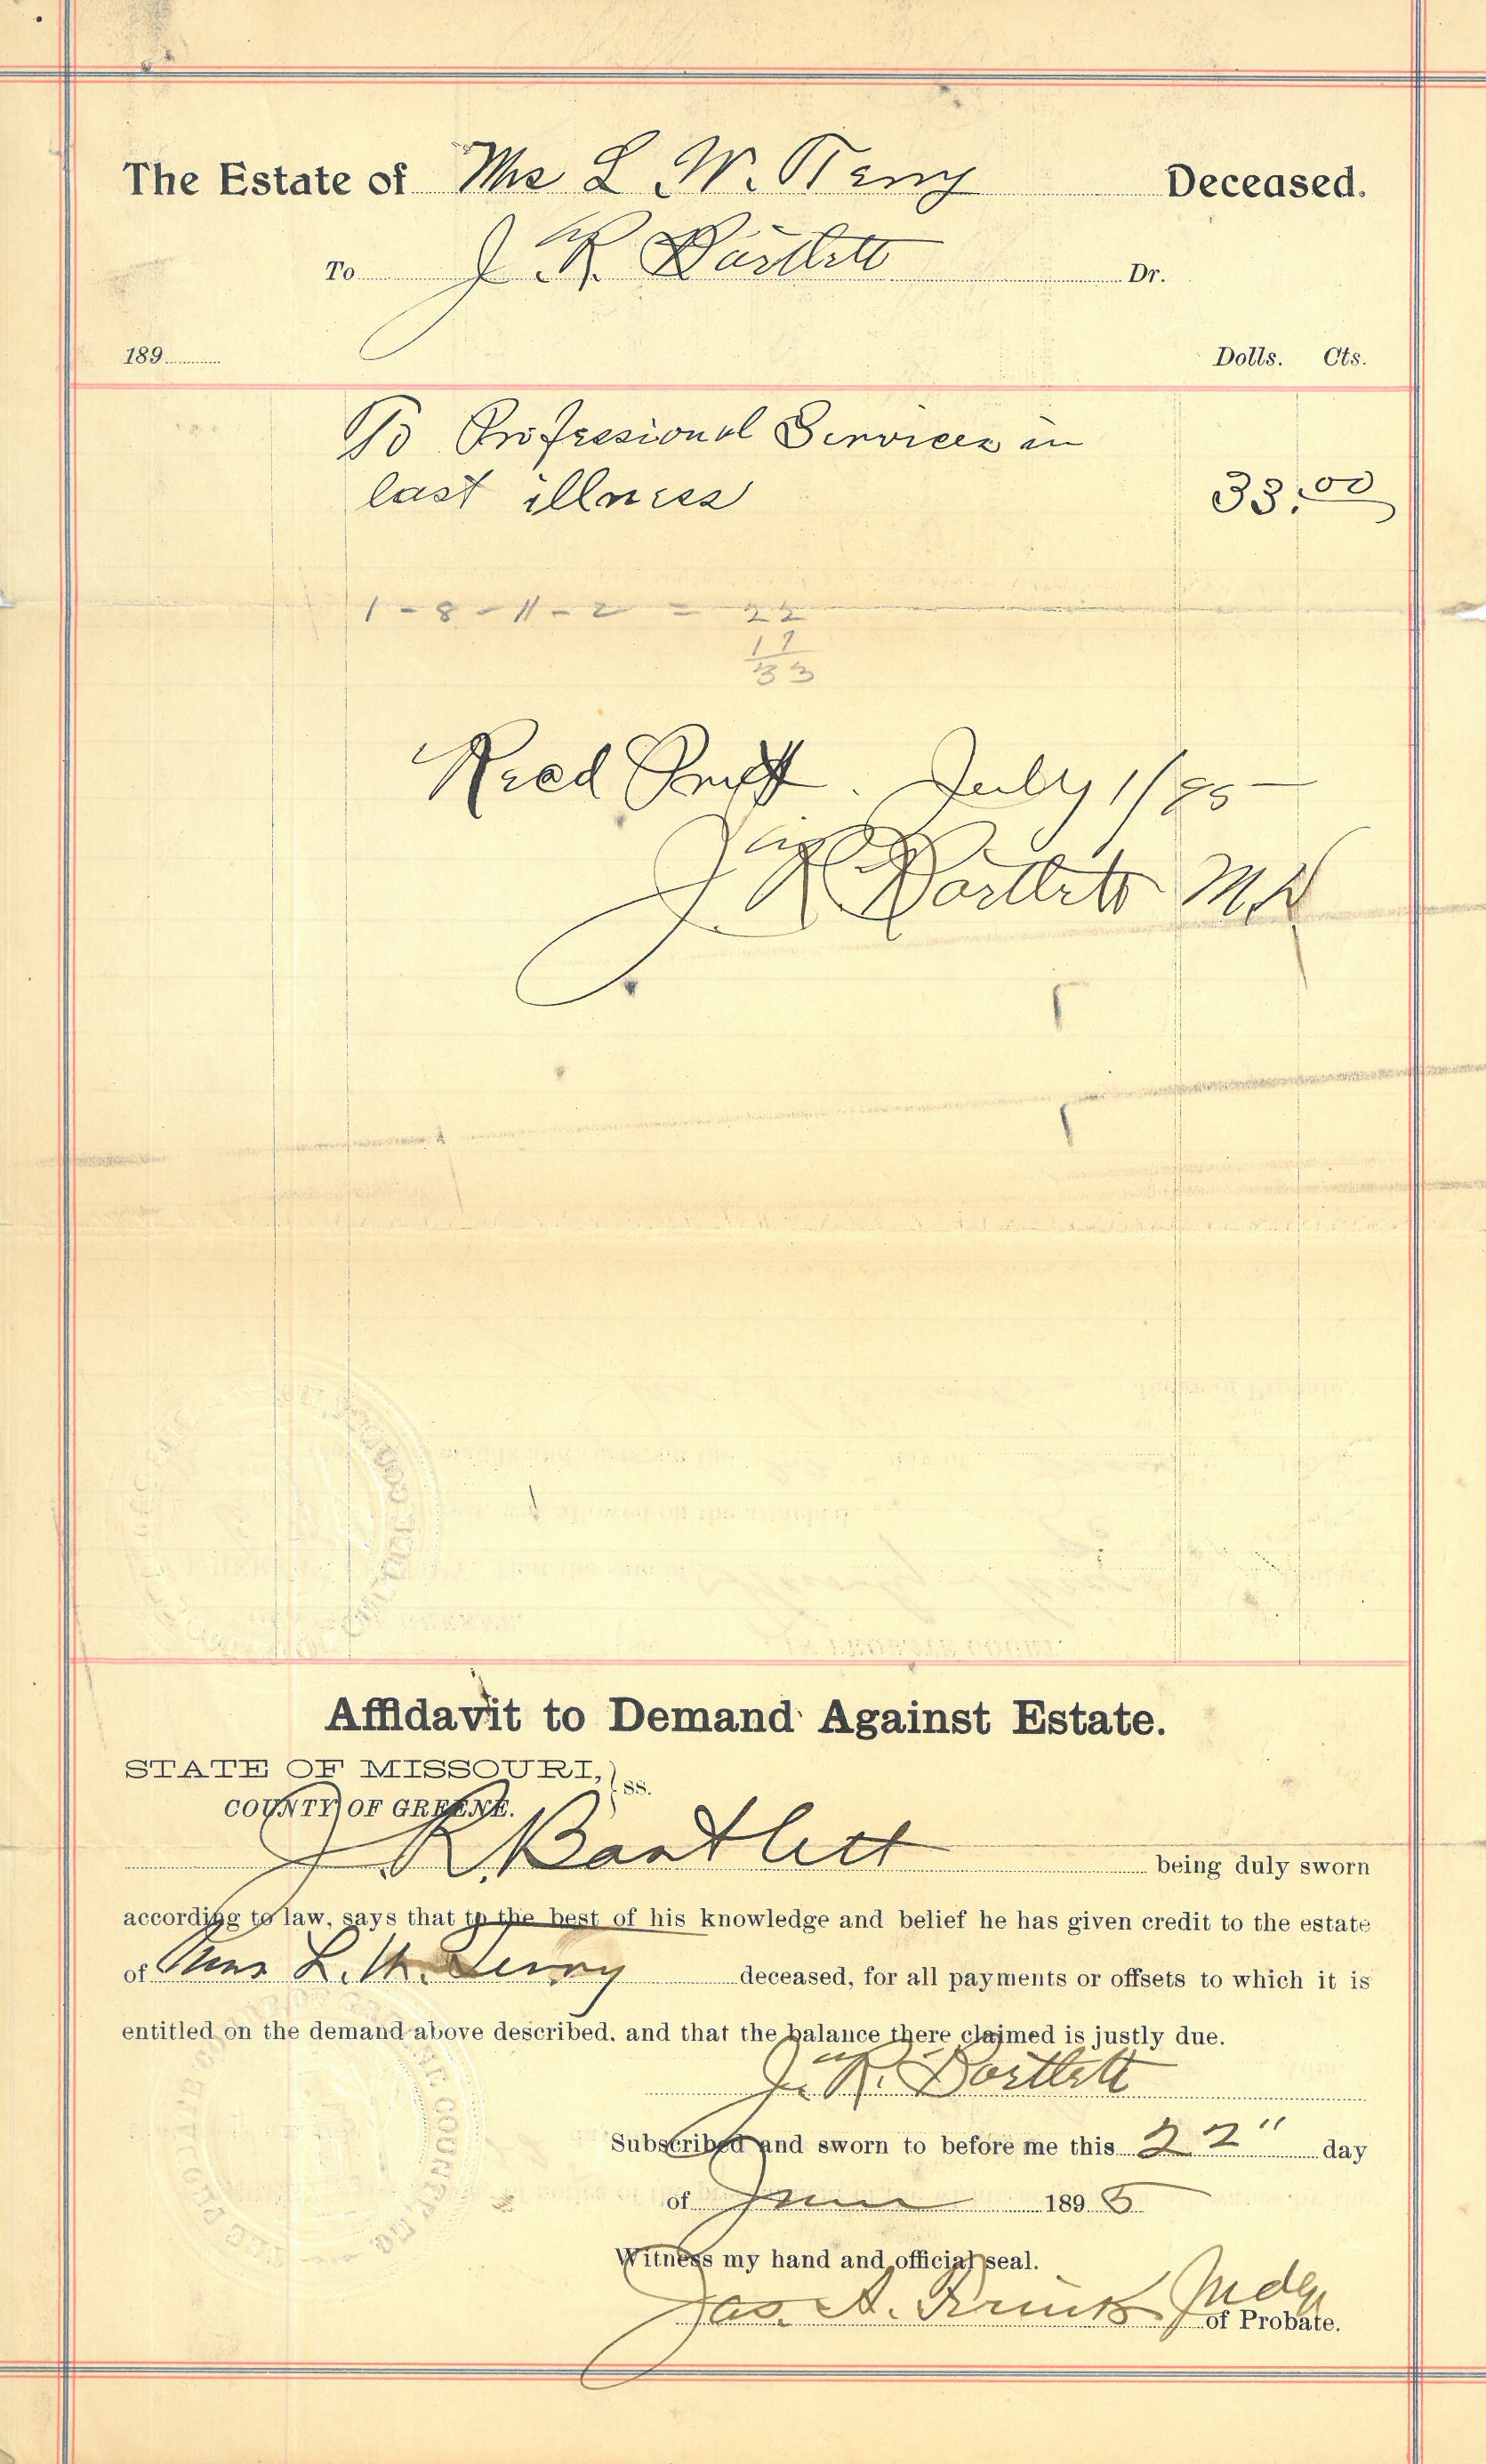 The Estate of Mrs L. W. Terry Deceased.
To J. R. Bartlett Dr.
189 Dolls. Cts.
To Professional Services in
last illness 33.00
1 - 8 - 11 - 2 = 22
11
33
Recd Pmt. July 1/95
J. R. Bartlett M.D
Affidavit to Demand Against Estate.
STATE OF MISSOURI, } ss.
COUNTY OF GREENE.
J. R. Bartlett being duly sworn
according to law, says that to the best of his knowledge and belief he has given credit to the estate
of Mrs L. W. Terry deceased, for all payments or offsets to which it is
entitled on the demand above described. and that the balance there claimed is justly due.
J. R. Bartlett
Subscribed and sworn to before me this 22" day
of June 1895
Witness my hand and official seal.
Jas. A. Judge
of Probate.